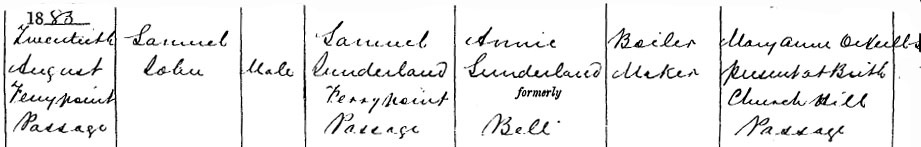 1883
Twentieth Samuel Samuel Annie Boiler Mary Anne
August John Male Sunderland Sunderland Maker present at Birth
Ferrypoint Ferrypoint formerly Church Hill
Passage Passage Bell Passage